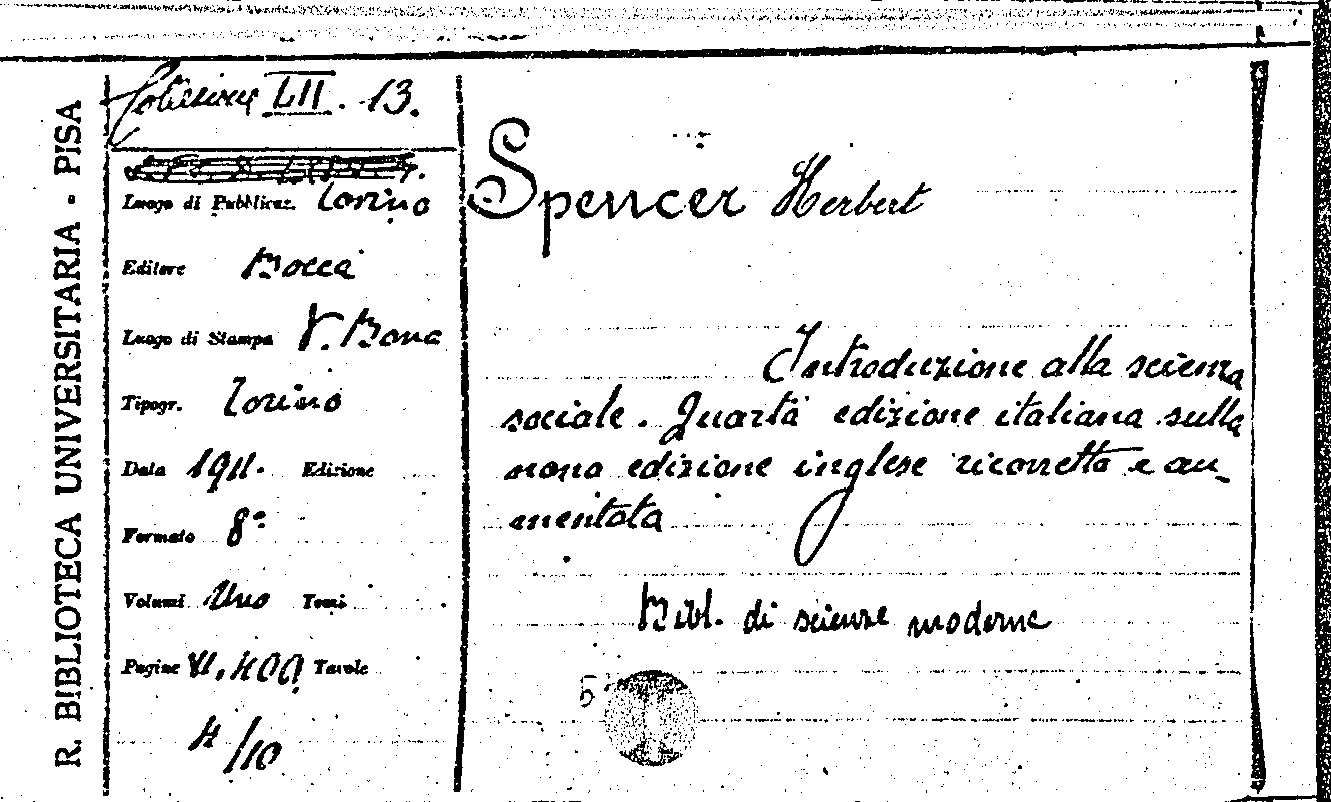 R. BIBLIOTECA UNIVERSITARIA - PISA
Collezione LII. 13.
Luogo di Pubblicaz. Torino
Editore Bocca
Luogo di Stampa V. Bona
Tipogr. Torino
Data 1911. Edizione
Formato 8°
Volumi Uno Tomi
Pagine 400 Tavole
4/10
Spencer Herbert
Introduzione alla scienza
sociale. Quarta edizione italiana sulla
nona edizione inglese ricorretta e au-
mentata
Bibl. di scienze moderne
5